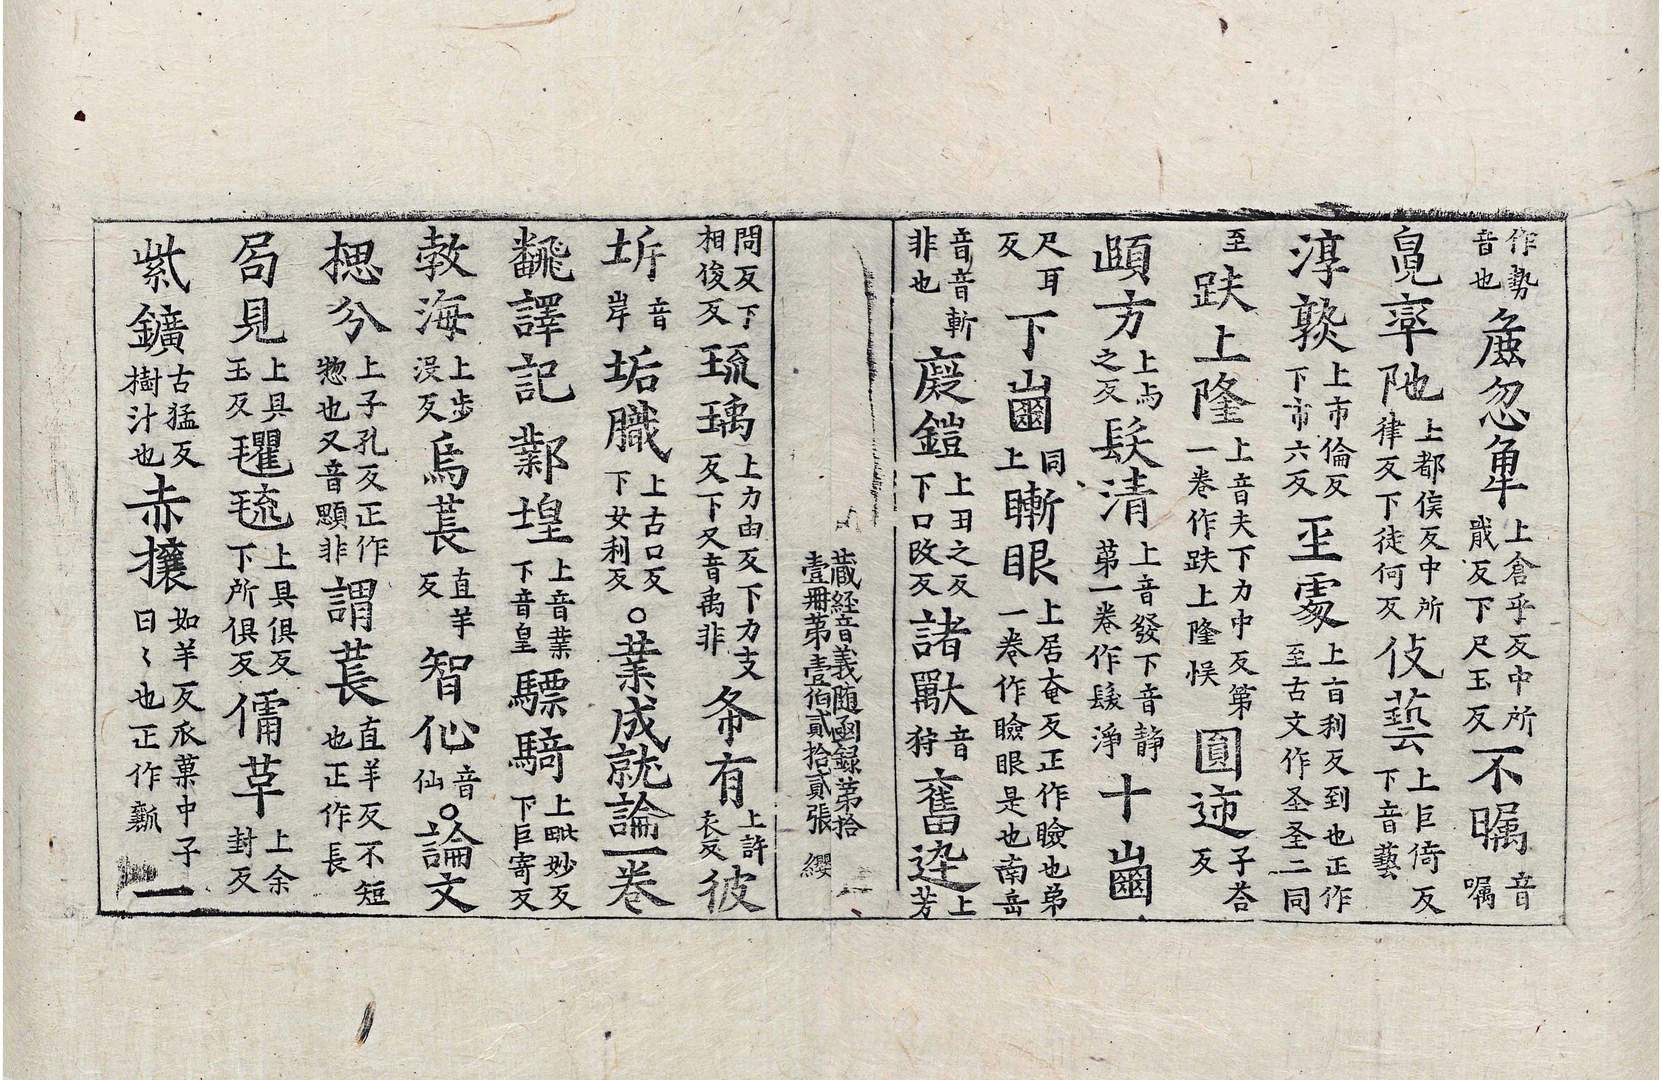 作勢音也麁忽犀上倉乎反中所戢反下尺玉反不矚音矚
臱率陁上都侯反中所律反下徒何反伎藝上巨倚反下音藝
淳熟上市倫反下市六反坙䨱上音利反到也正作至古文作圣圣二同
至趺上隆上音夫下力中反第一卷作趺上隆悮圓迊子荅反
頤方上与之反髮清上音發下音静第一卷作髮淨十齒
尺耳反下齒同上瞼眼上居奄反正作瞼也弟一卷作瞼眼是也南岳
音音斬非也㾱鎧上丑之反下口改反諸獸音狩奮迊上芳
藏経音義随函録第拾壹冊第壹伯貳拾貳張 纓
問反下相俊反琉璃上力由反下力支反下又音禹非希有上許衣反彼
圻音岸垢膱上古口反下女利反。業成就論一卷
飜譯記鄴堭上音業下音皇驃騎上毗妙反下巨寄反
敦海上步没反烏萇直羊反智仙音仙。論文
揌兮上子孔反正作惣也又音顋非謂萇直羊反不短也正作長
局見上具玉反氍毹上具俱反下所俱反傋草上余封反
紫鑛古猛反樹汁也赤攘如羊反瓜菓中子曰〻也正作瓤一